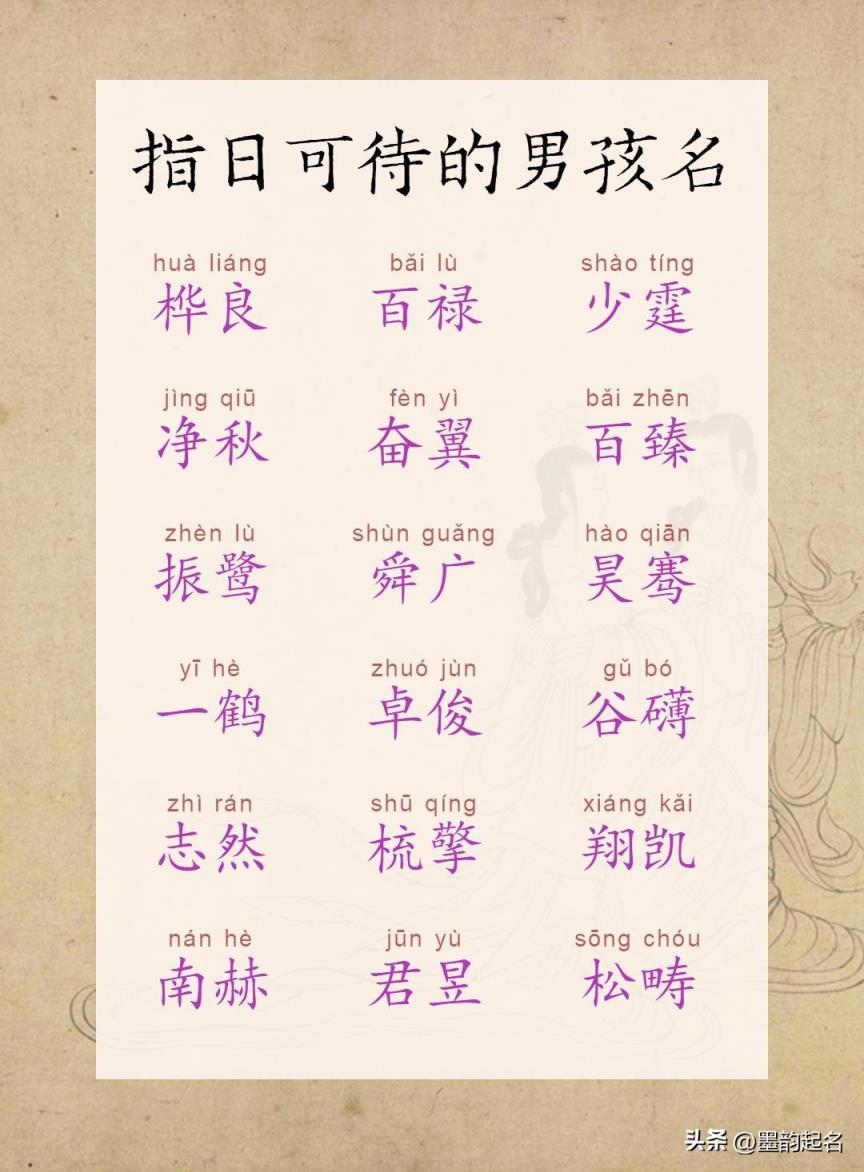 指日可待的男孩名
huà liáng bǎi lù shào tíng
桦良 百禄 少霆
jìng qiū fèn yì bǎi zhēn
净秋 奋翼 百臻
zhèn lù shùn guǎng hào qiān
振鹭 舜广 昊骞
yī hè zhuó jùn gǔ bó
一鹤 卓俊 谷礴
zhì rán shū qíng xiáng kǎi
志然 梳擎 翔凯
nán hè jūn yù sōng chóu
南赫 君昱 松畴
头条 @墨韵起名